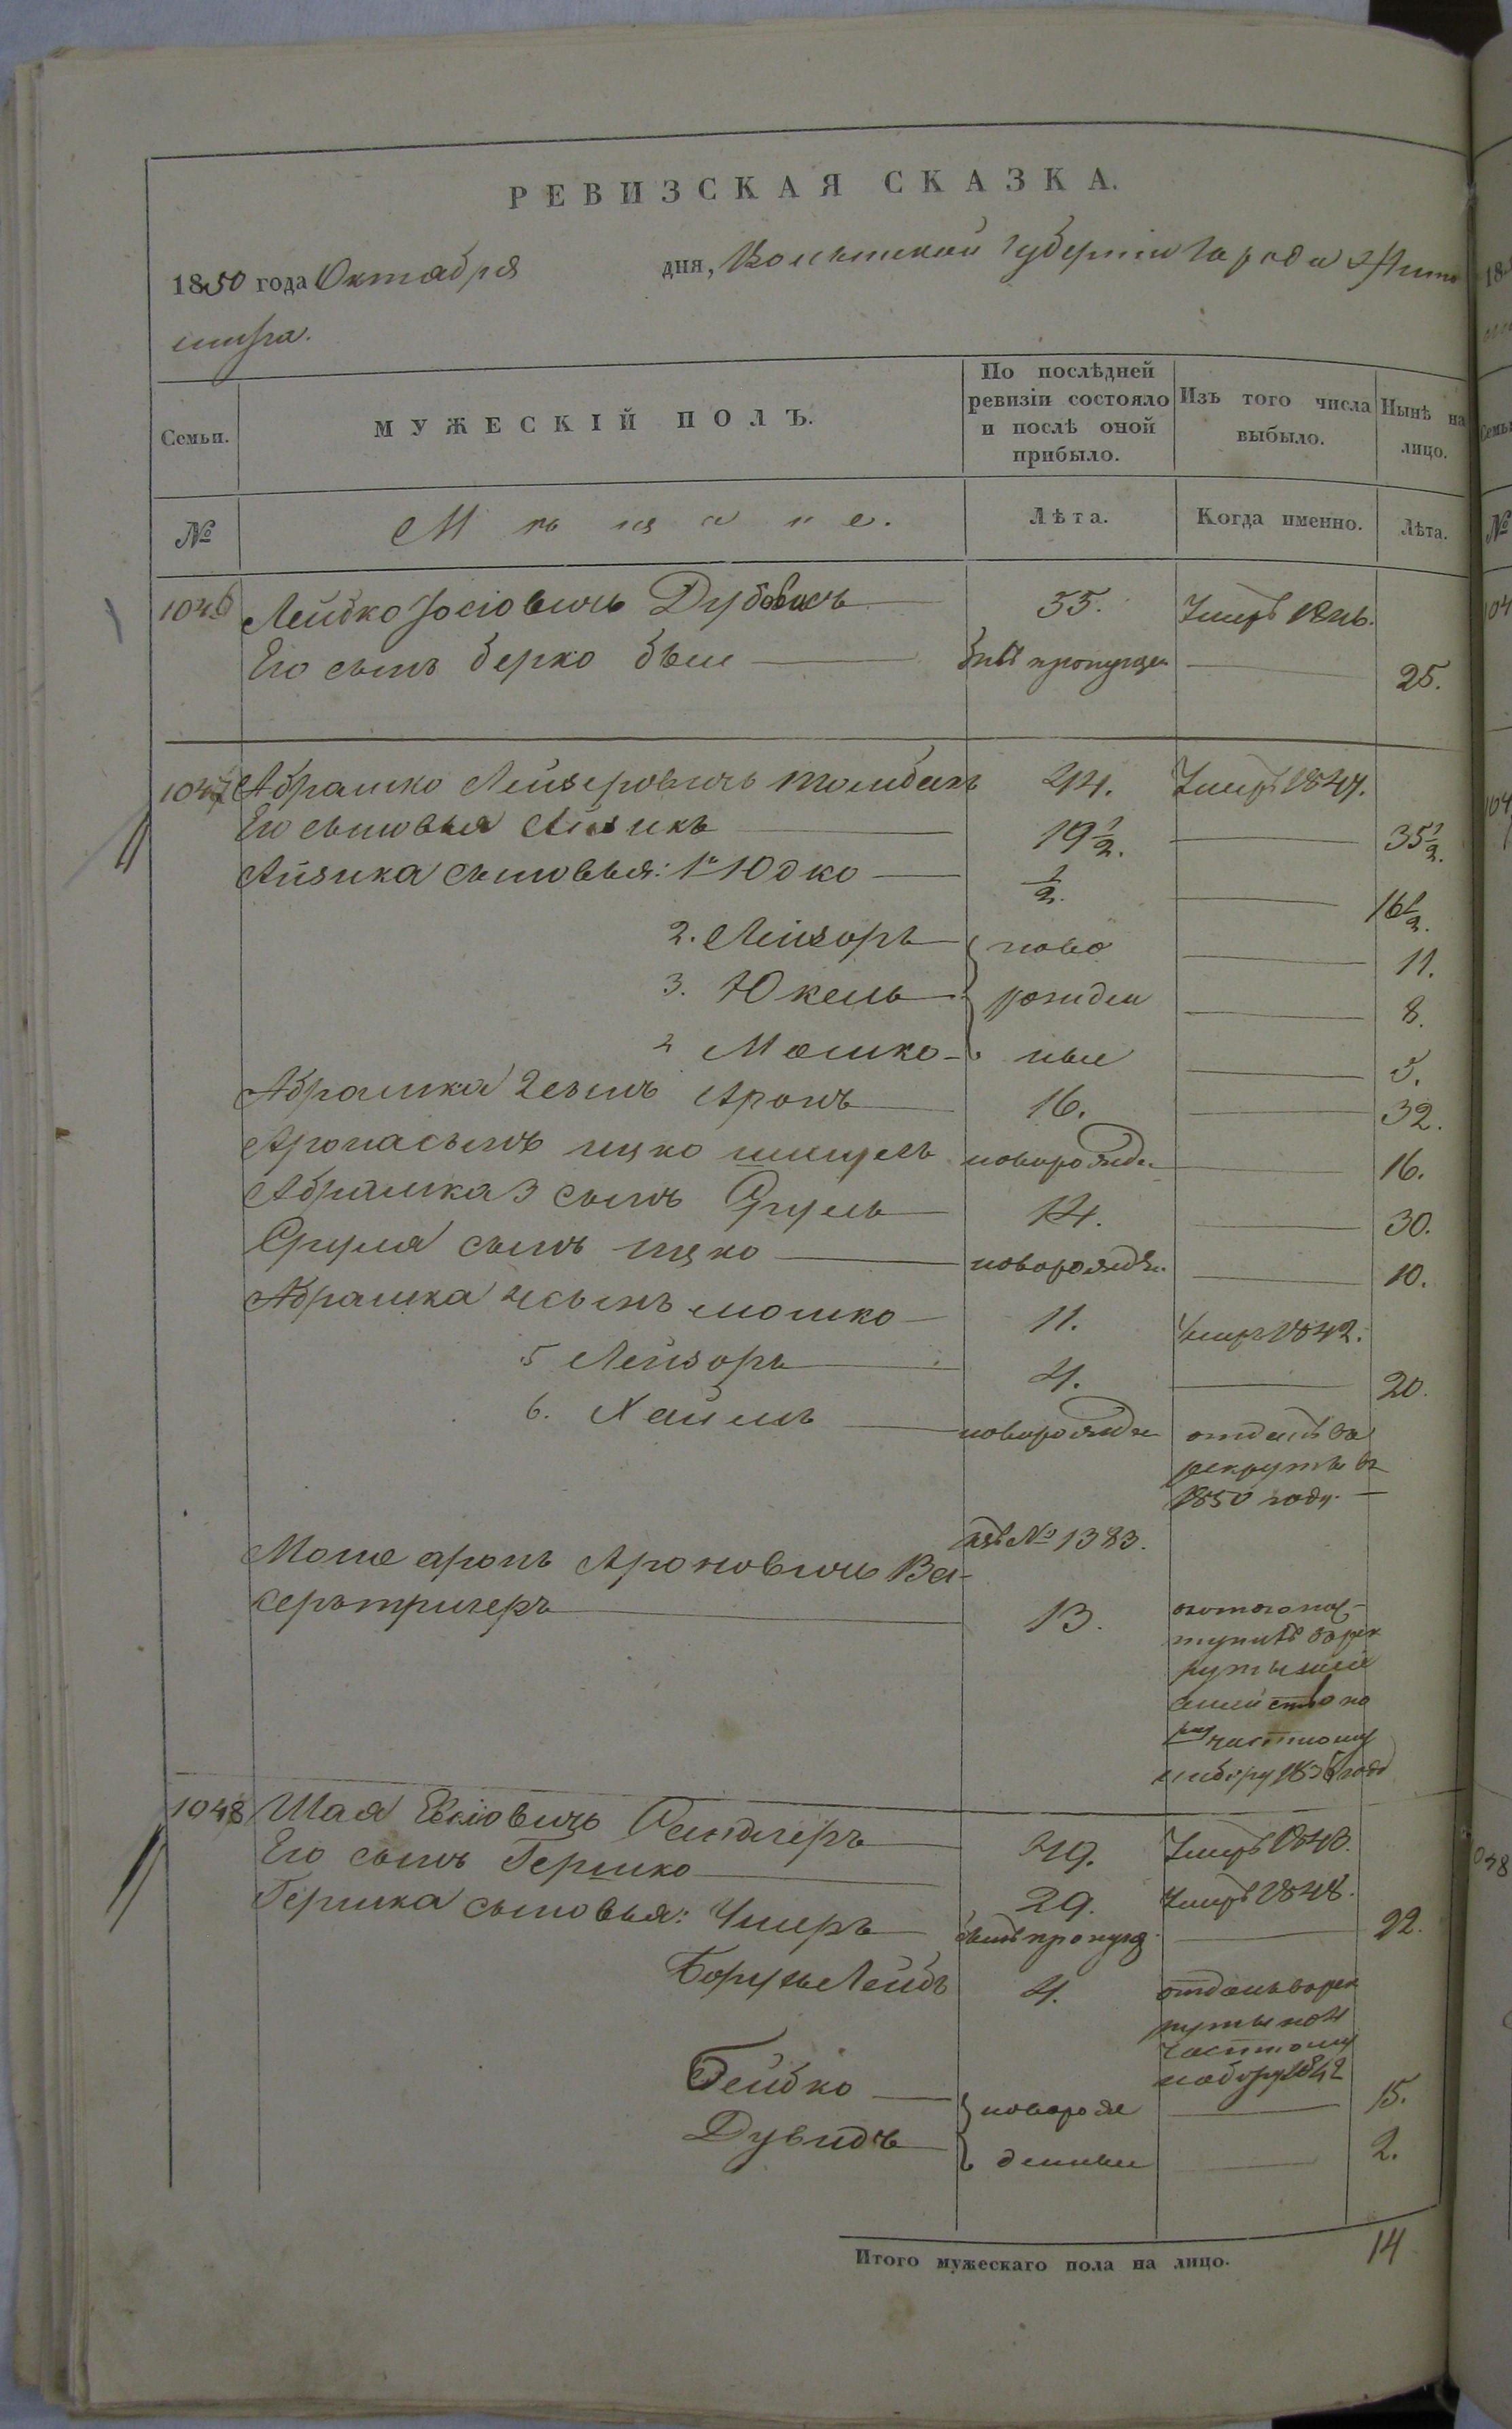 РЕВИЗСКАЯ СКАЗКА.
1850 года Октября дня, Волынской губернiи Города Жито
мира.
Семьи. МУЖЕСКІЙ ПОЛЪ. По послѣдней ревизіи состояло и послѣ оной прибыло. Изъ того числа выбыло. Нынѣ на лицо.
№ Мѣщане. Лѣта. Когда именно. Лѣта.
1046 Лейбко Іосіовичь 55. Умеръ 1846.
Его сынъ Берко былъ пропущен 25.
1047 Абрашко Лейзеровичь 44. Умеръ 1847.
Его сыновья Айзикъ 19½. 35½.
Айзика сыновья: 1й Юдко ½. 16½.
2. Лейзоръ ново 11.
3. Юкель рожден 8.
Мошко ные 5.
Абрашка 2 сынъ Аронъ 16. 32.
Арона сынъ Ицко новорожде 16.
Абрашка 3 сынъ Сруль 14. 30.
Сруля сынъ Ицко новорожде. 10.
Абрашка 4 сынъ Мошко 11. Умеръ 1842.
5 Лейзоръ 4. 20.
6. Хаимъ новорожде отданъ въ
рекруты въ
1850 году.
изъ № 1383.
Моше Аронъ Ароновичь Ва-
13.
ступилъ въ рек
руты
семейство по
частному
набору 1836 года
1048 Шая Сандлеръ 49. Умеръ 1843.
Его сынъ Гершко 29. Умеръ 1848.
Гершка сыновья: былъ пропущ. 22.
Борухъ Лейбъ 4. отданъ в рек
руты по 4
частному
набору 1842
Лейбко новорож 15.
Дувидъ денные 2.
Итого мужескаго пола на лицо. 14